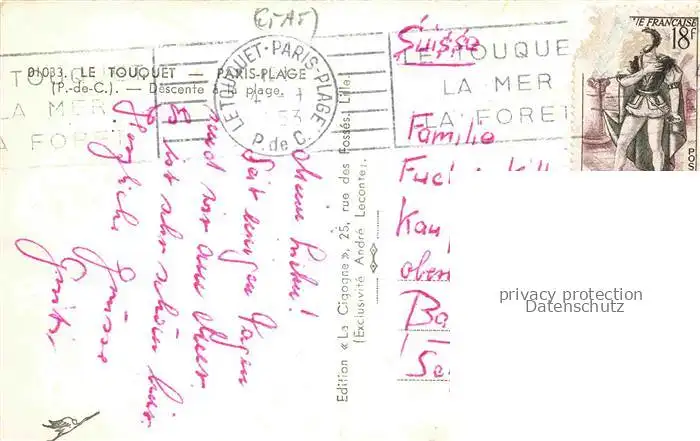 (STAF)
Suisse
E FRANÇAISE
18F
POS
LE TOUQUET
LA MER
LA FORET
LE TOUQUET · PARIS-PLAGE
P. de C.
53
TO
LA MER
A FORET
81033. LE TOUQUET — PARIS-PLAGE
(P.-de-C.). — Descente à la plage.
Meine Lieben!
Seit einigen Tagen
sind wir am Meer.
Es ist sehr schön hier.
Herzliche Grüsse
Edition « La Cigogne », 25, rue des Fossés, Lille.
(Exclusivité André Leconte).
Familie
Kau
ober
Ba
privacy protection
Datenschutz